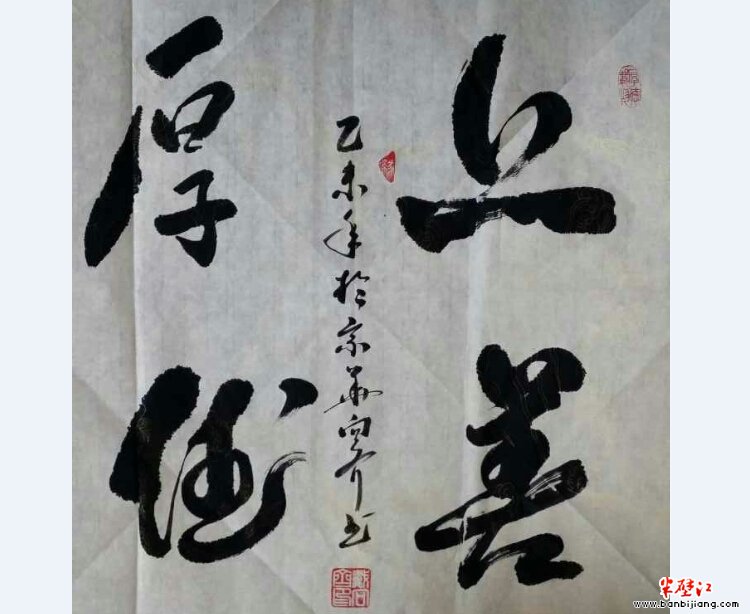 上善
厚德
乙未年於京華向齐书
半壁江
www.banbijiang.com